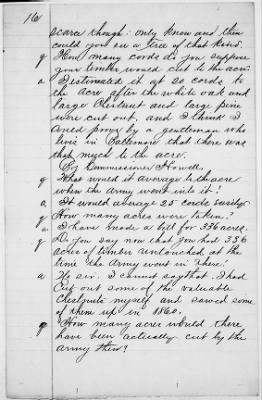 16
scarce though: only know and then
could you see a tree of that kind.
q How many cords do you suppose
your timber would cut to the acre
a I estimated it at 20 cords to
the acre after the white oak and
large Chestnut and large pine
were cut out, and I think I
could prove by a gentleman who
lives in Baltimore that there was
that much to the acre.
By Commissioner Howell.
q What would it average to the acre
when the Army went into it?
a It would average 25 cords easily.
q How many acres were taken?
a I have made a bill for 336 acres.
q Do you say now that you had 336
acres of timber untouched at the
time the Army went in there?
a No sir. I cannot say that. I had
Cut out some of the valuable
Chestnuts myself and sawed some
of them up in 1860.
q How many acres would there
have been actually cut by the
army then?